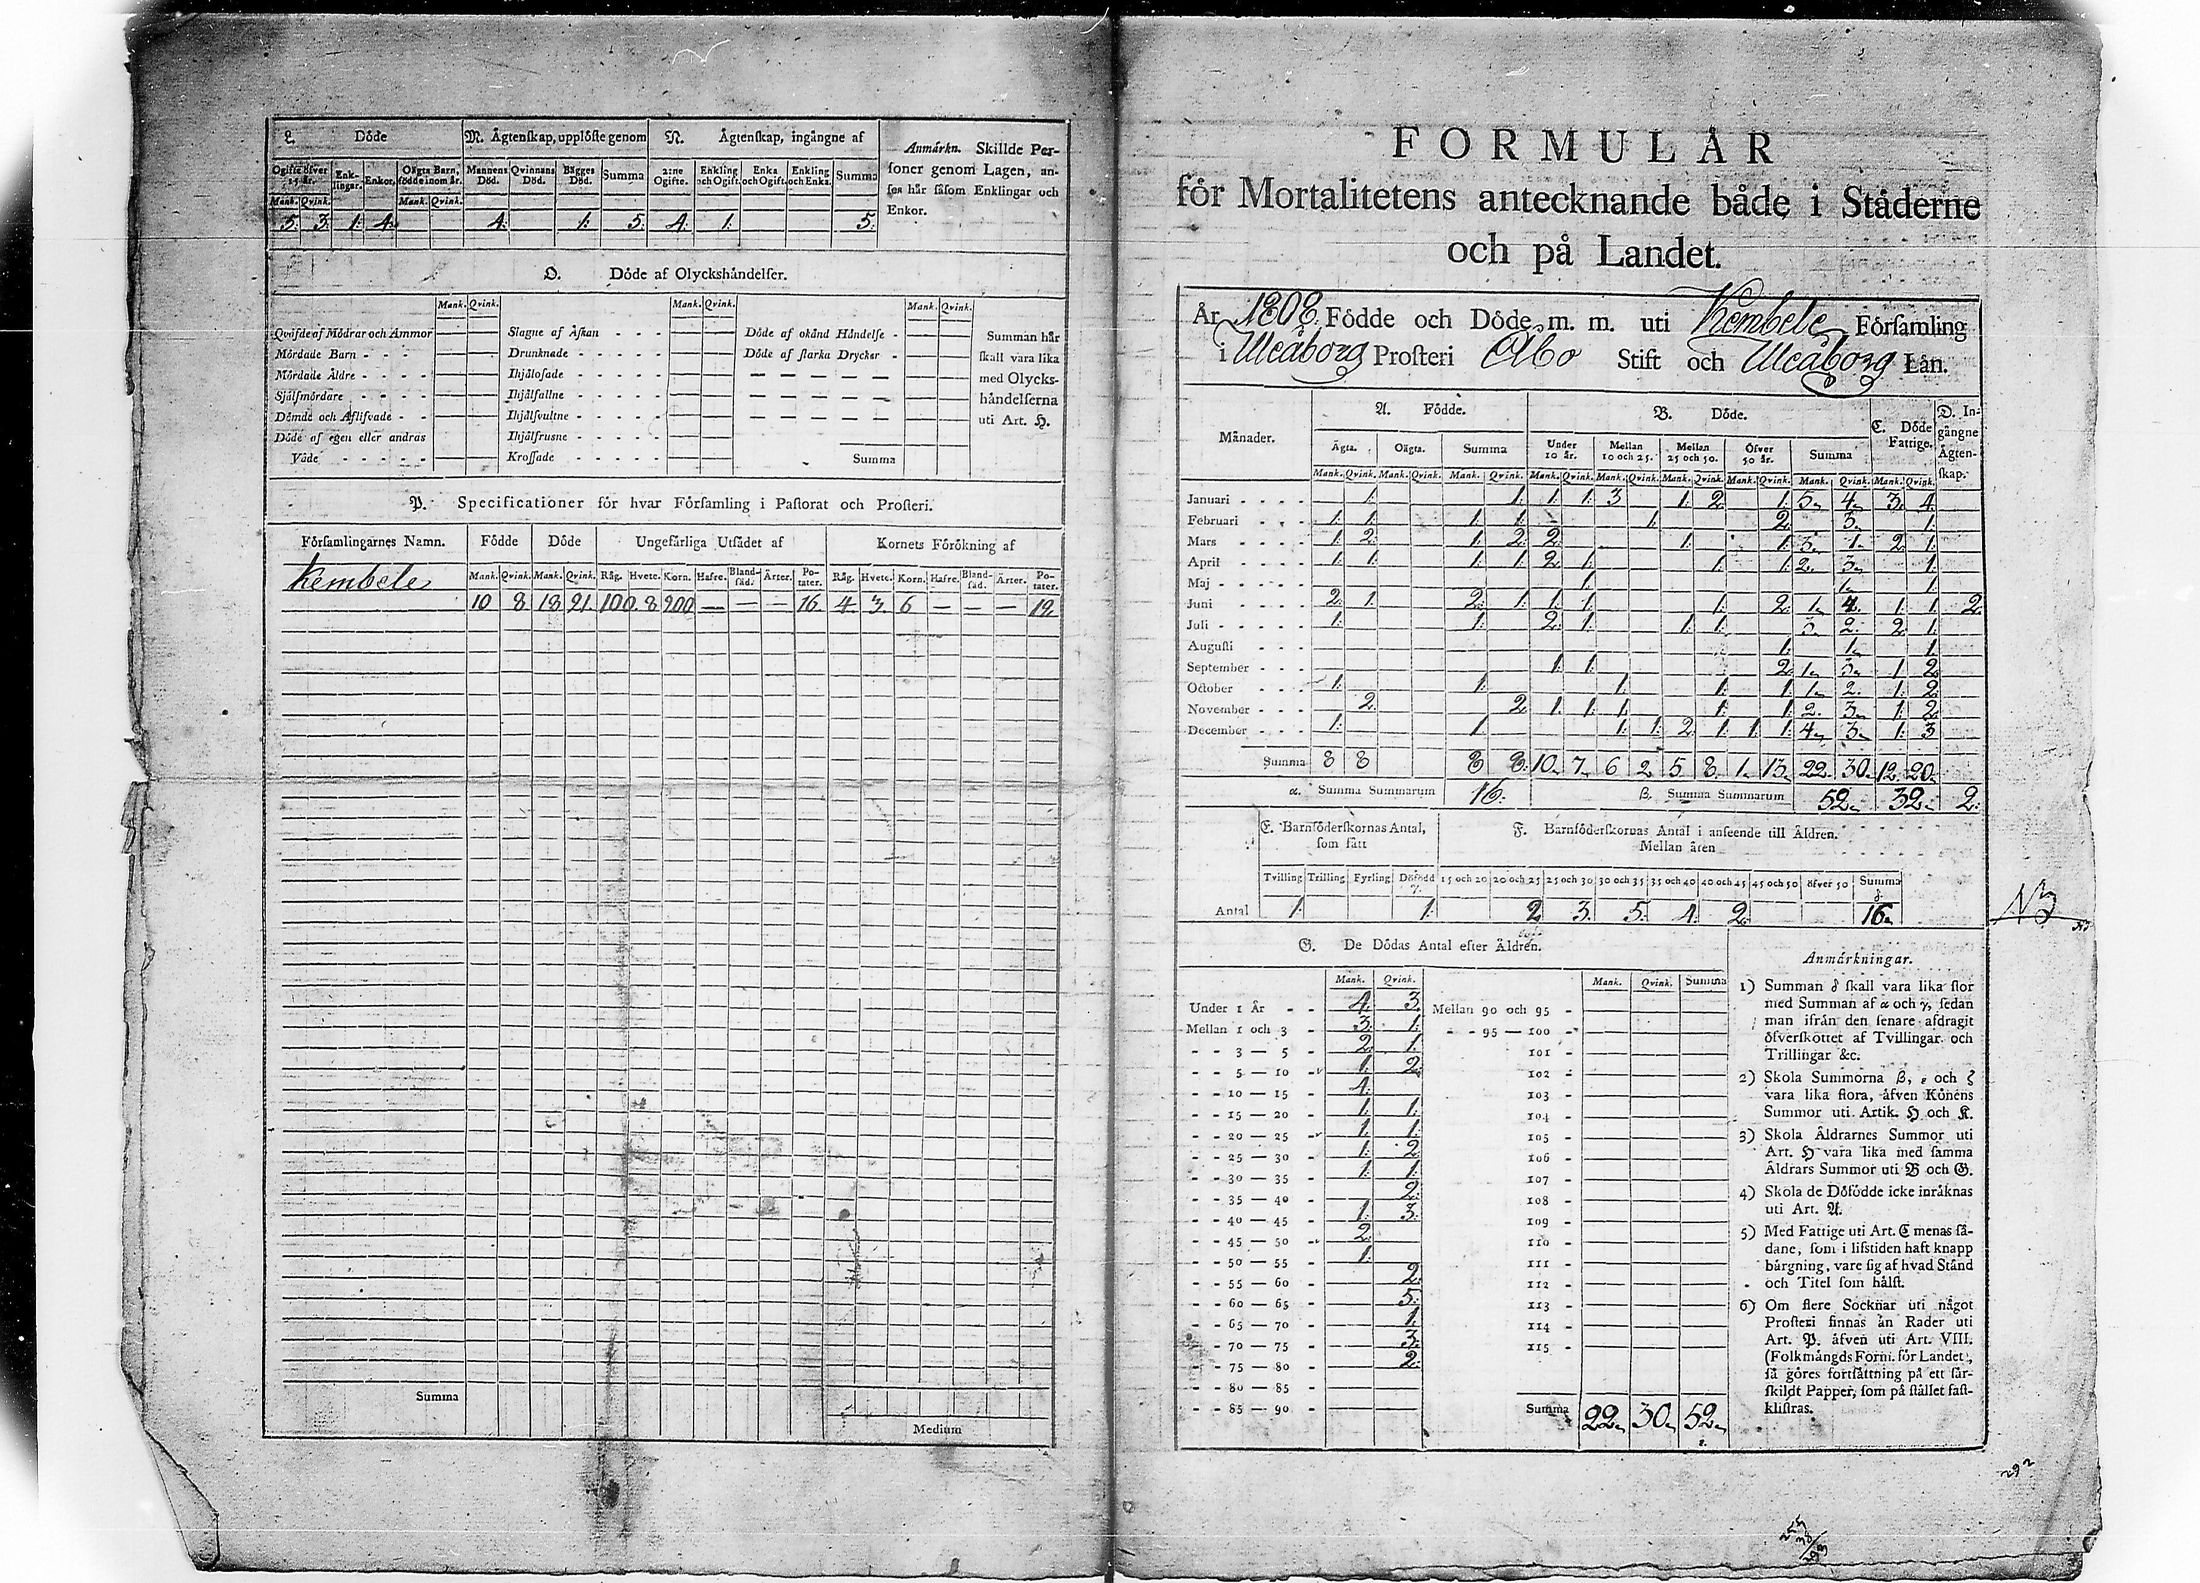 L. Döde
M. Ågtenskap, upplöste genom
N. Ågtenskap, ingångne af
Anmärkn. Skillde Personer genom Lagen, anses här såsom Enklingar och Enkor.
Ogifte öfver 15 år. Enklingar. Enkor. Oägta Barn, födde inom år. Mannens Död. Qvinnans Död. Bägges Död. Summa 2:ne Ogifte. Enkling och Ogift. Enka och Ogift. Enkling och Enka. Summa
Mank. Qvink. Mank. Qvink.
5. 3. 1. 4. 4. 1. 5. 4. 1. 5.
O. Döde af Olyckshändelser.
Mank. Qvink. Mank. Qvink. Mank. Qvink.
Qväfde af Mödrar och Ammor Slagne af Åskan - - - Döde af okänd Händelse -
Mördade Barn - - - - Drunknade - - - - - Döde af starka Drycker -
Mördade Äldre - - - - Ihjälosade - - - - -
Sjålfmördare - - - - Ihjälfallne - - - - -
Dömde och Aflifvade - - Ihjälsvultne - - - - -
Döde af egen eller andras Ihjälfrusne - - - - -
Våde - - - - - Krossade - - - - - Summa
Summan här
skall vara lika
med Olycks-
håndelserna
uti Art. H.
P. Specificationer för hvar Församling i Pastorat och Prosteri.
Församlingarnes Namn. Födde Döde Ungefärliga Utsädet af Kornets Förökning af
Mank. Qvink. Mank. Qvink. Råg. Hvete. Korn. Hafre. Blandsäd. Ärter. Potater. Råg. Hvete. Korn. Hafre. Blandsäd. Ärter. Potater.
Kembele
10 8 18 21 100. 8 200 — — — 16 4 3. 6 — — — 12
Summa
Medium
FORMULÄR
för Mortalitetens antecknande både i Städerne
och på Landet.
År 1808. Födde och Döde m. m. uti Kembele Församling
i Uleåborg Prosteri Åbo Stift och Uleåborg Län.
Månader. A. Födde. B. Döde. C. Döde Fattige. D. Ingångne Ägtenskap.
Ägta. Oägta. Summa Under 10 år. Mellan 10 och 25. Mellan 25 och 50. Öfver 50 år. Summa
Mank. Qvink. Mank. Qvink. Mank. Qvink. Mank. Qvink. Mank. Qvink. Mank. Qvink. Mank. Qvink. Mank. Qvink. Mank. Qvink.
Januari - - - - 1. 1. 1. 1. 3 1. 2. 1. 5 4 3. 4.
Februari - - - 1. 1. 1. 1. 1. 2. 3 1.
Mars - - - - 1. 2. 1. 2. 2. 1. 1. 3. 1. 2. 1.
April - - - - 1. 1. 1. 1. 2. 1. 1. 1. 2. 3. 1.
Maj - - - - 1. 1 1.
Juni - - - - 2. 1. 2. 1. 1. 1. 1. 2. 1 4. 1. 1. 2.
Juli - - - - 1. 1. 2. 1. 1. 1. 3 2. 2. 1.
Augusti - - - 1. 1 1.
September - - - 1. 1. 2. 1 3 1. 2.
October - - - 1. 1. 1. 1. 1. 1 2. 1. 2.
November - - - 2. 2. 1. 1. 1. 1. 1. 2. 3 1. 2.
December - - - 1. 1. 1. 1. 2. 1. 1. 1. 4 3 1. 3
Summa 8 8 8 8. 10 7 6 2 5. 8. 1 13 22. 30. 12. 20.
α. Summa Summarum 16. β. Summa Summarum 52. 32. 2.
E. Barnföderskornas Antal, som fått
F. Barnföderskornas Antal i anseende till Äldren.
Mellan åren
Tvilling Trilling Fyrling Dödfödd γ. 15 och 20 20 och 25 25 och 30 30 och 35 35 och 40 40 och 45 45 och 50 öfver 50 Summa δ
Antal 1. 1. 2 3. 5. 4. 2. 16.
NB
G. De Dödas Antal efter Äldren.
Mank. Qvink. Mank. Qvink. Summa
Under 1 År - - 4. 3. Mellan 90 och 95 -
Mellan 1 och 3 - 3. 1. - - 95 — 100 -
- - 3 — 5 - 2. 1. 101 -
- - 5 — 10 - 1. 2. 102 -
- - 10 — 15 - 4. 103 -
- - 15 — 20 - 1. 1. 104 -
- - 20 — 25 - 1. 1. 105 -
- - 25 — 30 - 1. 2. 106 -
- - 30 — 35 - 1. 1. 107 -
- - 35 — 40 - 2. 108 -
- - 40 — 45 - 1. 3. 109 -
- - 45 — 50 - 2. 110 -
- - 50 — 55 - 1. 111 -
- - 55 — 60 - 2. 112 -
- - 60 — 65 - 5. 113 -
- - 65 — 70 - 1. 114 -
- - 70 — 75 - 3. 115 -
- - 75 — 80 - 2.
- - 80 — 85 -
- - 85 — 90 - Summa 22. 30. 52.
ε.
Anmärkningar.
1) Summan δ skall vara lika stor
med Summan af α och γ, sedan
man ifrån den senare afdragit
öfverskottet af Tvillingar och
Trillingar &c.
2) Skola Summorna β, ε och ζ
vara lika stora, äfven Könens
Summor uti Artik. H och K.
3) Skola Äldrarnes Summor uti
Art. H vara lika med samma
Äldrars Summor uti B och G.
4) Skola de Döfödde icke inräknas
uti Art. A.
5) Med Fattige uti Art. C menas så-
dane, som i lifstiden haft knapp
bärgning, vare sig af hvad Stånd
och Titel som hälst.
6) Om flere Socknar uti något
Prosteri finnas än Rader uti
Art. P. äfven uti Art. VIII.
(Folkmängds Form. för Landet),
så göres fortsättning på ett sär-
skildt Papper, som på stället fast-
klistras.
292